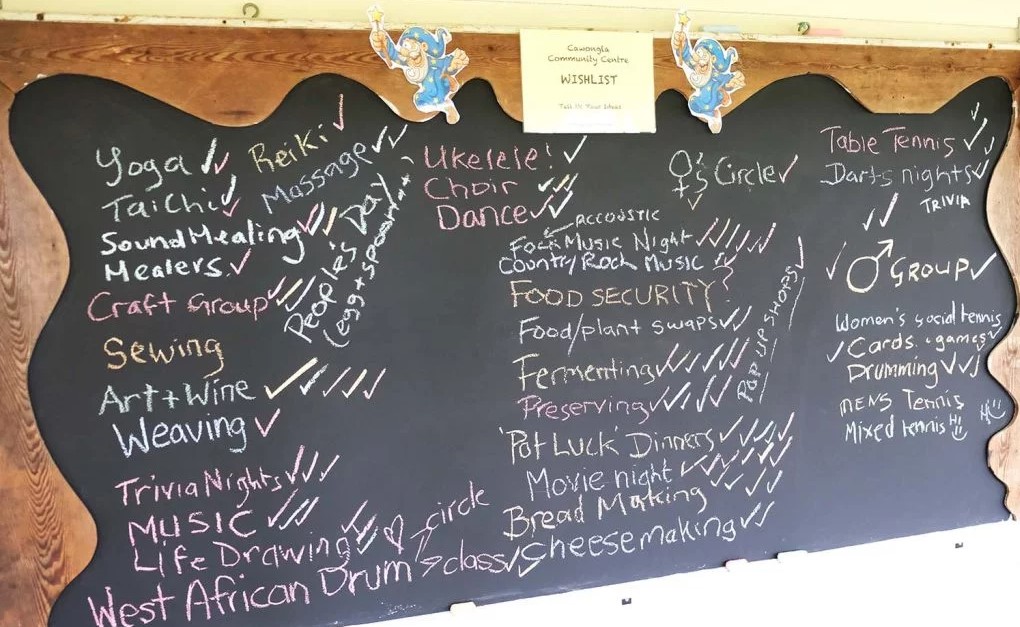 Cawongla
Community Centre
WISHLIST
Yoga
Tai Chi
Sound Healing
Healers
Craft Group
Sewing
Art + Wine
Weaving
Trivia Nights
MUSIC
Life Drawing
West African Drum circle
class
Reiki
Massage
People's Day
(egg + spoon
Ukelele!
Choir
Dance
ACCOUSTIC
Folk Music Night
Country/Rock Music
FOOD SECURITY
Food/plant swaps
Fermenting
Preserving
'Pot Luck' Dinners
Movie night
Bread Making
Cheesemaking
POP UP SHOPS
♀'s Circle
Table Tennis
Darts nights
TRIVIA
♂ GROUP
Women's social tennis
Cards + games
Drumming
MENS Tennis
Mixed tennis Hi
Hi